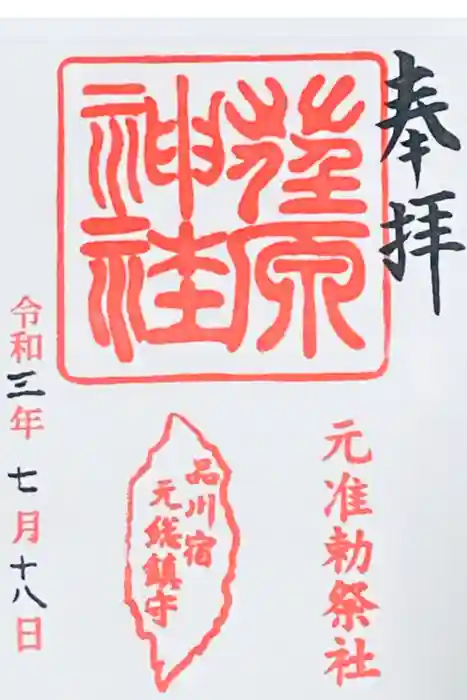 奉拝
荏原
神社
元准勅祭社
品川宿
元総鎮守
令和三年七月十八日